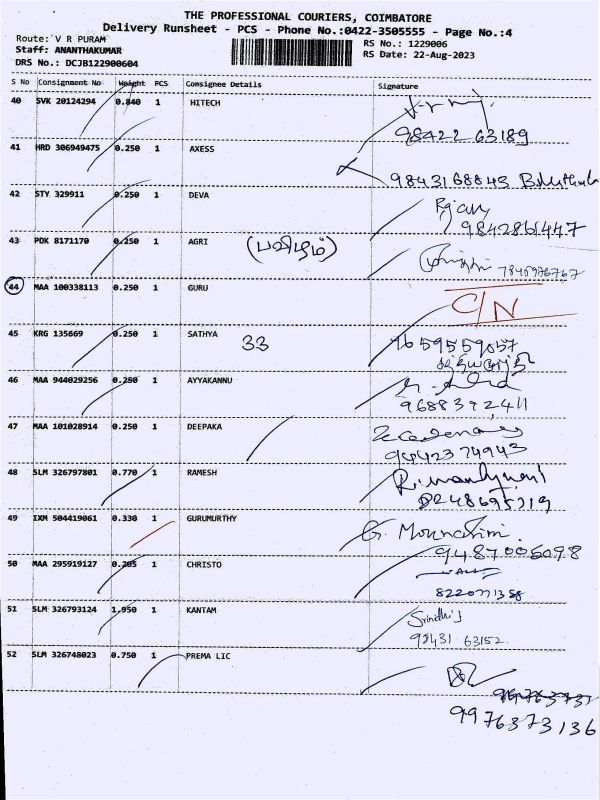 THE PROFESSIONAL COURIERS, COIMBATORE
Delivery Runsheet - PCS - Phone No.:0422-3505555 - Page No.:4
Route: V R PURAM
RS No.: 1229006
Staff: ANANTHAKUMAR
RS Date: 22-Aug-2023
DRS No.: DCJB122900604
S No Consignment No Weight PCS Consignee Details Signature
40 SVK 20124294 0.840 1 HITECH
98422 63189
41 HRD 306949475 0.250 1 AXESS
9843168843
42 STY 329911 0.250 1 DEVA
9842861447
43 PDK 8171170 0.250 1 AGRI (பவிழம்)
7845976767
44 MAA 100338113 0.250 1 GURU C/N
45 KRG 135669 0.250 1 SATHYA 33 9659559057
46 MAA 944029256 0.250 1 AYYAKANNU
9688392411
47 MAA 101028914 0.250 1 DEEPAKA
9442374943
48 SLM 326797801 0.770 1 RAMESH
49 IXM 504419061 0.330 1 GURUMURTHY
9487005098
50 MAA 295919127 0.205 1 CHRISTO
8220771358
51 SLM 326793124 1.950 1 KANTAM Srinidhi J
98431 63152
52 SLM 326748023 0.750 1 PREMA LIC
9976373136